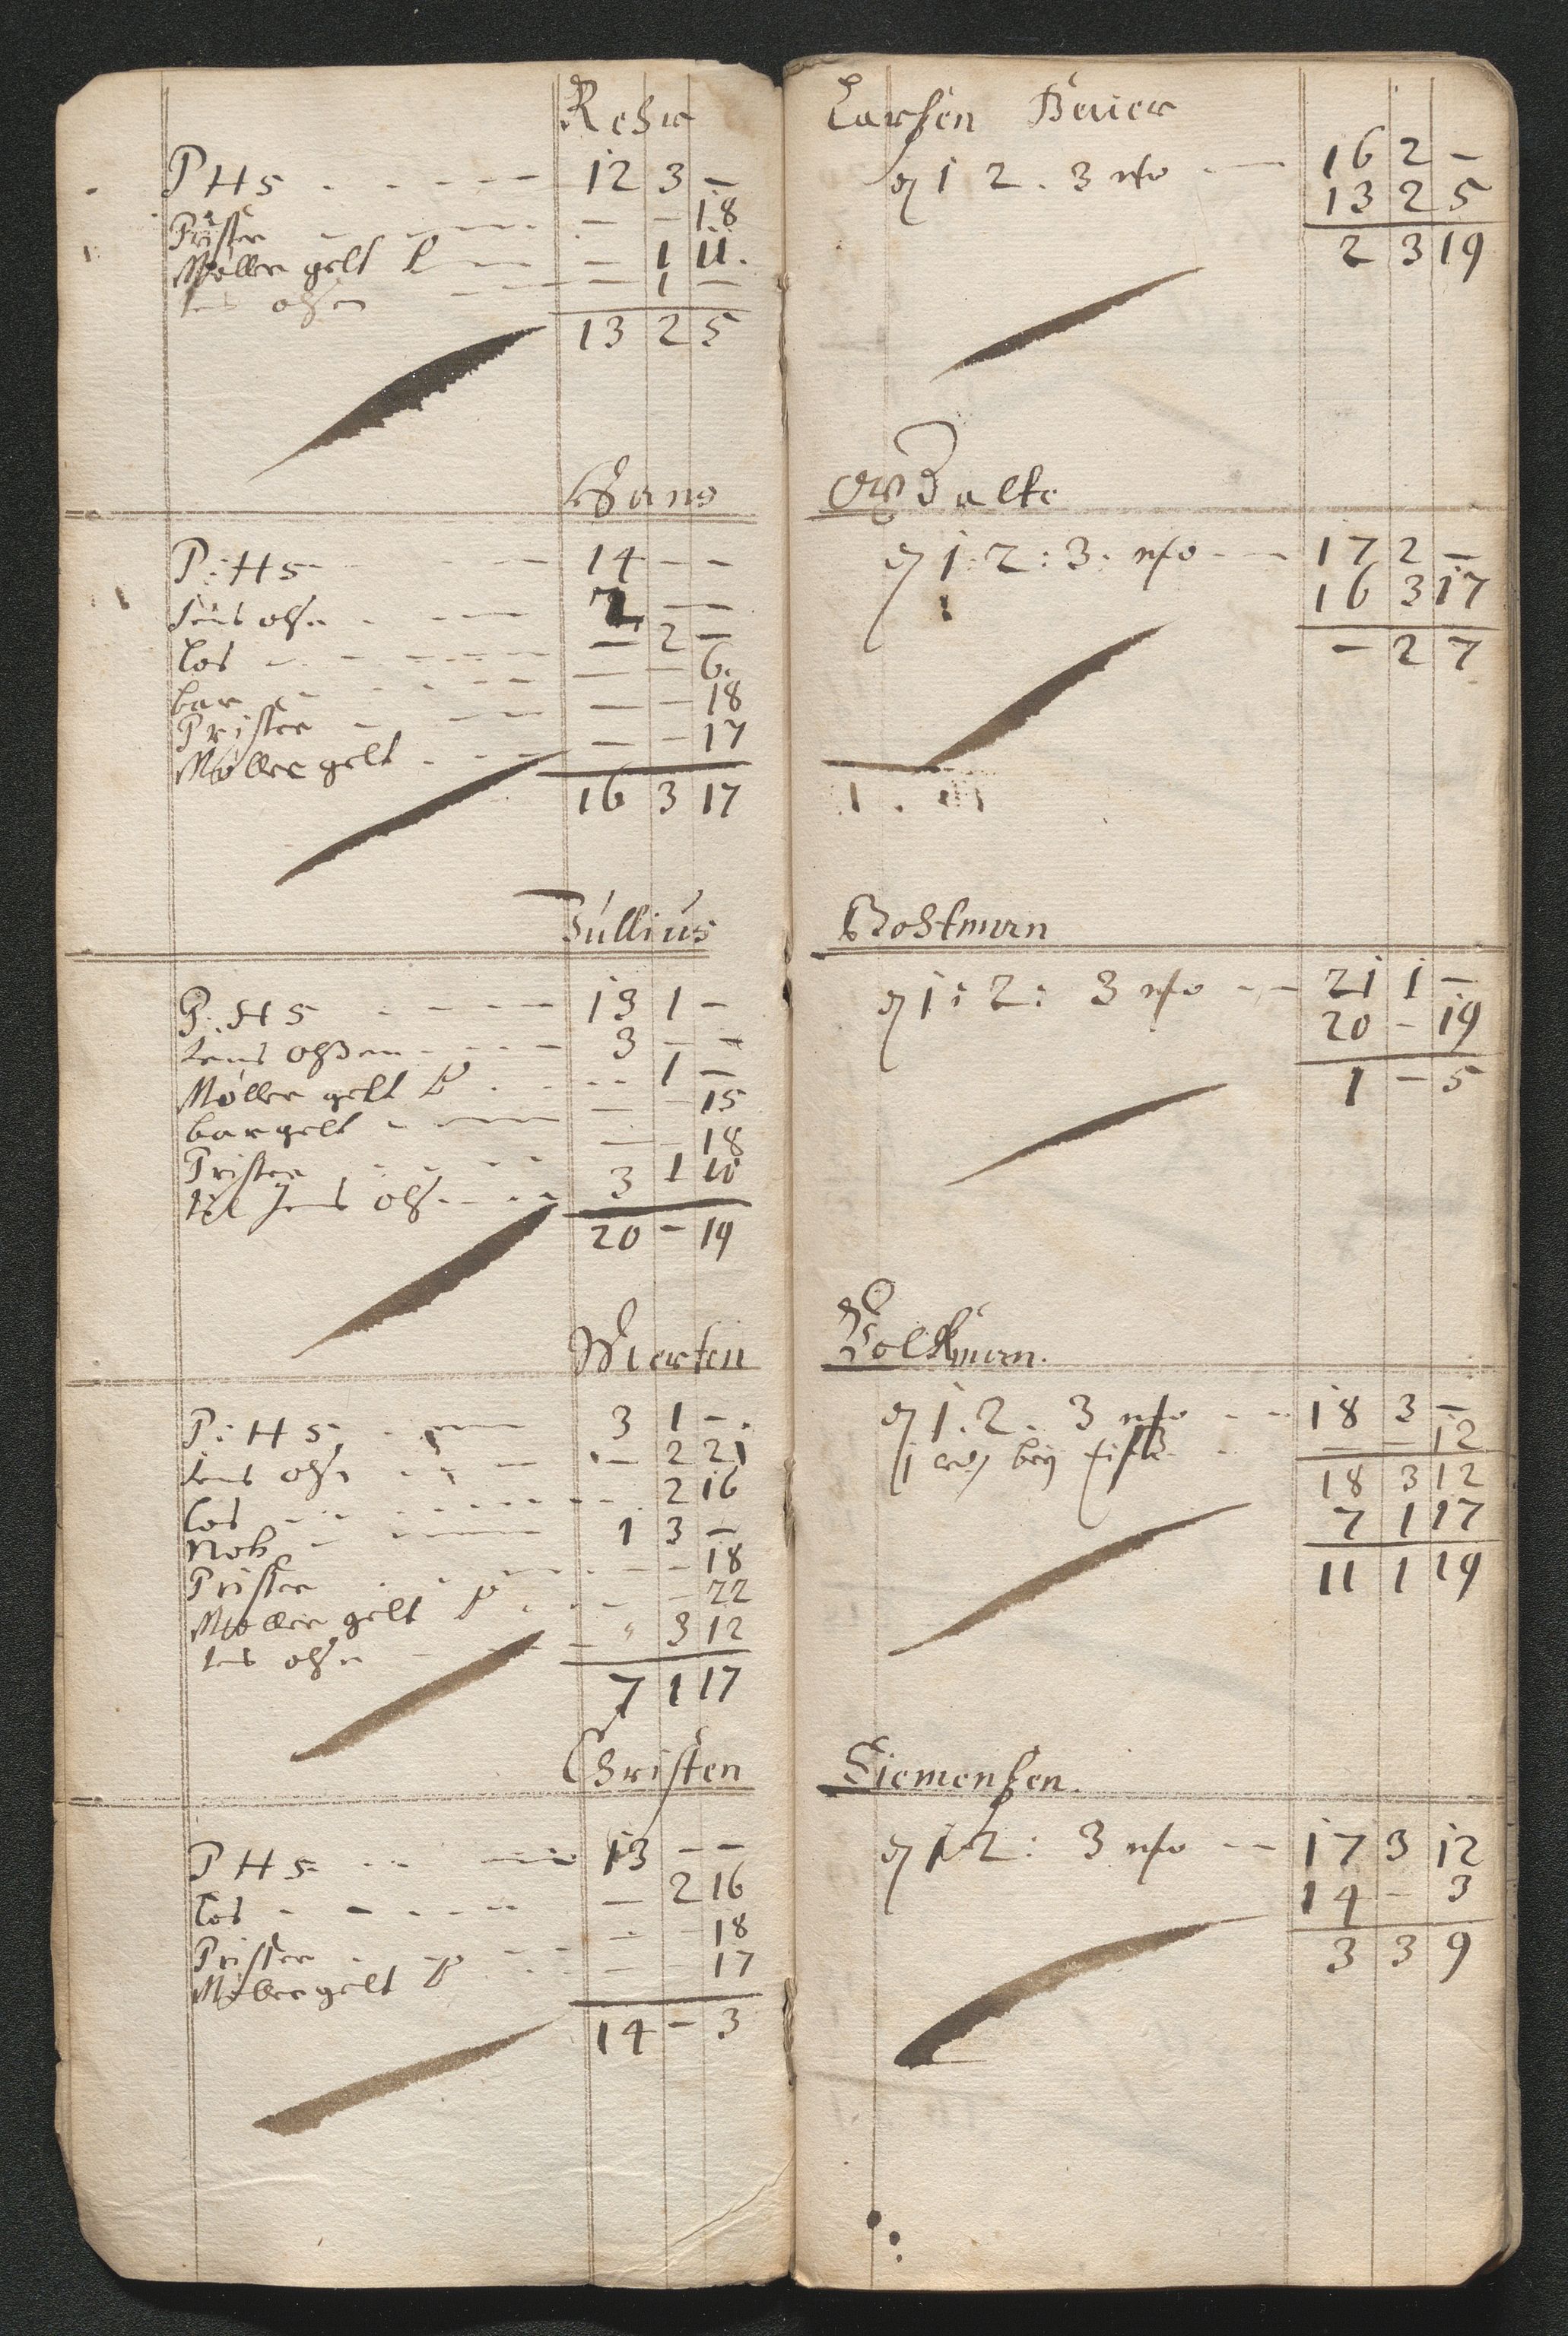 Rehr
P H s 12 3 -
Prister - - 18
Møller gelt - 1 11.
Jens olsen - 1 -
13 2 5
Hans
P: H s 14 - -
Jens ols. - -
Los - 2 -
bar - - 6.
Prister - - 18
Møller gelt - - 17
16 3 17
Jullius
P. H s 13 1 -
Jens olsen 3 - -
Møller gelt 1 -
bargelt - - 15
Prister - - 18
Jens ols. 3 1 10
20 - 19
Merten
P: H s 3 1 -.
Jens ols - 2 21
Los 2 16
Nob 1 3 -
Prister - - 18
Møller gelt - - 22
Jens ols - 3 12
7 1 17
Christen
P H s 13 - -
Los - 2 16
Prister - - 18
Møller gelt - - 17
14 - 3
Larsen Beuer
1 2 . 3 16 2 -
13 2 5
2 3 19
1 : 2 : 3 . 17 2 -
16 3 17
- 2 7
Bostman
1 : 2 : 3 21 1 -
20 - 19
1 - 5
Volkman.
1 . 2 . 3 18 3 -
1 beÿ - - 12
18 3 12
7 1 17
11 1 19
Siemensen.
1 2 : 3 17 3 12
14 - 3
3 3 9